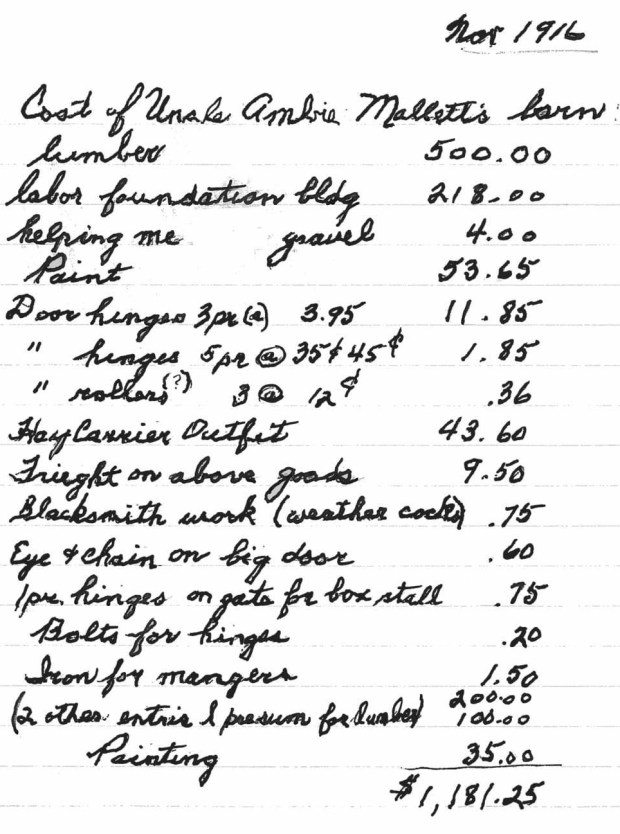 Nov 1916
Cost of Uncle Ambie Mallett's barn:
lumber 500.00
labor foundation bldg 218.00
helping me gravel 4.00
Paint 53.65
Door hinges 3 pr @ 3.95 11.85
" hinges 5 pr @ 35¢ 45¢ 1.85
" rollers(?) 3 @ 12¢ .36
Hay Carrier Outfit 43.60
Frieght on above goods 9.50
Blacksmith work (weather cocks) .75
Eye & chain on big door .60
1 pr. hinges on gate for box stall .75
Bolts for hinges .20
Iron for mangers 1.50
(2 other entrie I presum for lumber) 200.00
100.00
Painting 35.00
$1,181.25